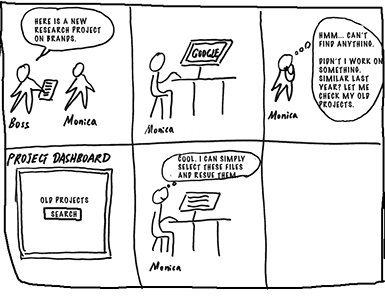 HERE IS A NEW
RESEARCH PROJECT
ON BRANDS.
Boss
Monica
GOOGLE
Monica
HMM... CAN'T
FIND ANYTHING.
DIDN'T I WORK ON
SOMETHING.
SIMILAR LAST
YEAR? LET ME
CHECK MY OLD
PROJECTS.
Monica
PROJECT DASHBOARD
OLD PROJECTS
SEARCH
COOL. I CAN SIMPLY
SELECT THESE FILES
AND RESUE THEM
Monica